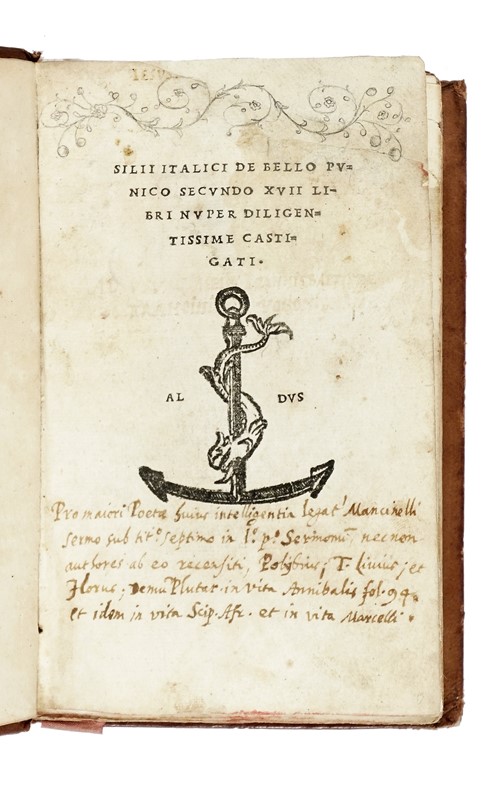 SILII ITALICI DE BELLO PV=
NICO SECVNDO XVII LI-
BRI NVPER DILIGEN=
TISSIME CASTI=
GATI.
AL DVS
Pro maiori Poetæ huius intelligentia legat' Mancinelli
sermo sub tit.º septimo in l.º p.º Sermonū, necnon
authores ab eo recensiti, Polybius, T. Livius, et
Florus, Demū Plutar. in vita Annibalis fol. 94.
et idem in vita Scip. Afr. et in vita Marcelli.